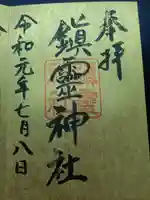 奉拝
鎮靈神社
令和元年七月八日